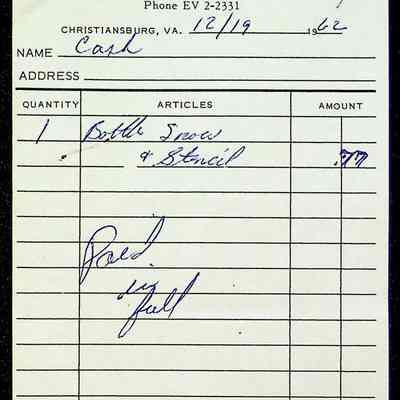 Phone EV 2-2331
CHRISTIANSBURG, VA. 12/19 1962
NAME Cash
ADDRESS
QUANTITY ARTICLES AMOUNT
1 Bottle Snow
& Stencil .77
Paid
in
full